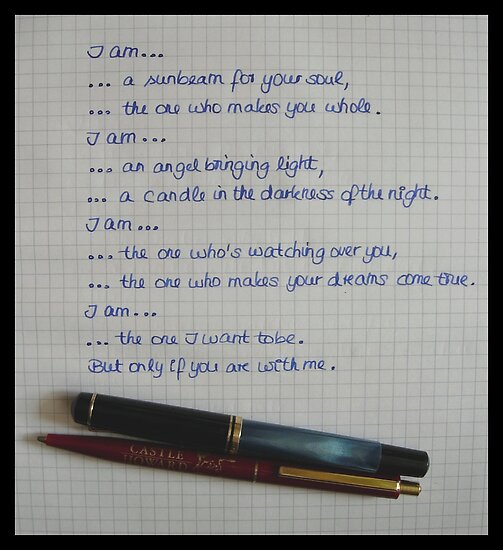 I am...
... a sunbeam for your soul,
... the one who makes you whole.
I am...
... an angel bringing light,
... a candle in the darkness of the night.
I am...
... the one who's watching over you,
... the one who makes your dreams come true.
I am...
... the one I want to be.
But only if you are with me.
CASTLE
HOWARD